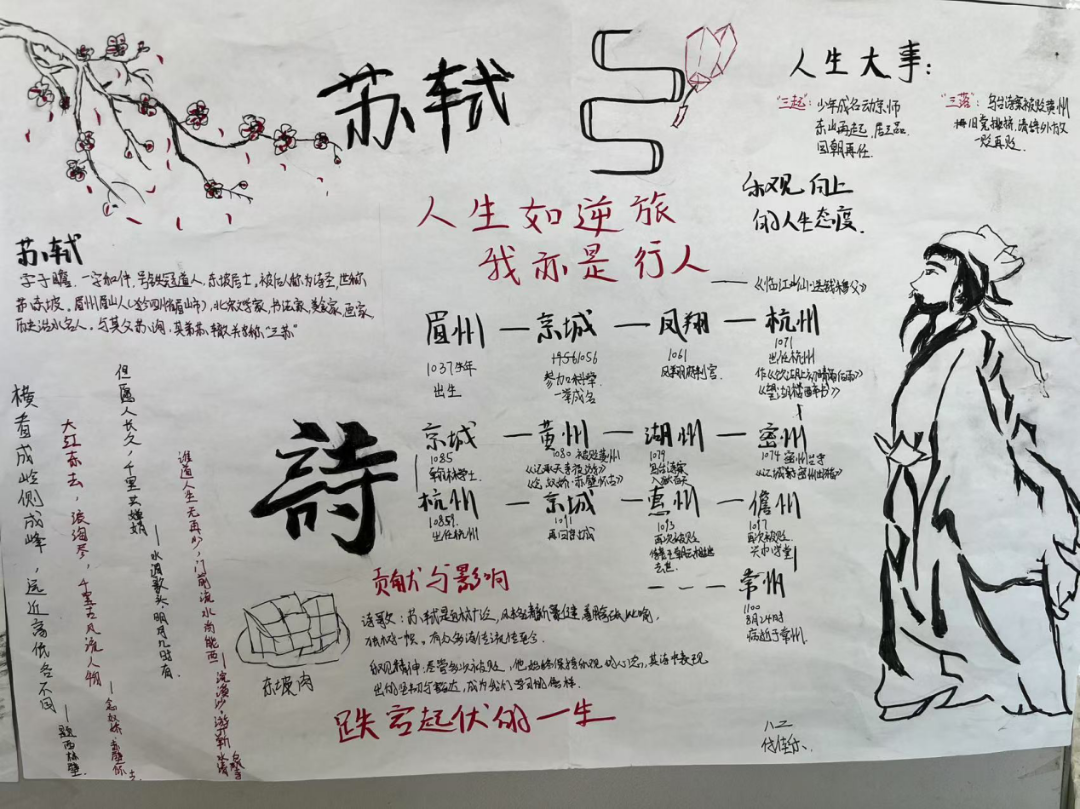 苏轼
人生大事：
"三起"：少年成名动京师
东山再起，居三品
回朝再任.
"三落"：乌台诗案被贬黄州
一贬再贬.
乐观向上
的人生态度.
人生如逆旅
我亦是行人
——《临江仙·送钱穆父》
苏轼
字子瞻，一字和仲，号铁冠道人，东坡居士，世称
苏东坡，眉州眉山人(今四川省眉山市)，北宋文学家，书法家，美食家，画家，
历史治水名人，与其父苏洵，其弟苏辙父子称"三苏"
眉州—京城—凤翔—杭州
1037年
出生
1056
参加科举
一举成名
1061
凤翔府判官.
1071
出任杭州
作《饮湖上初晴后雨》
《望湖楼醉书》
京城—黄州—湖州—密州
1085
翰林学士.
1080 被贬黄州
《记承天寺夜游》
《念奴娇·赤壁怀古》
1079
乌台诗案
1074 密州
《江城子·密州出猎》
杭州—京城—惠州—儋州
1089
出任杭州
1091
再回京城
1093
再次被贬
去世.
1097
再次被贬
---常州
1100
8月24时
病逝于常州.
横看成岭侧成峰，远近高低各不同
——题西林壁.
大江东去，浪淘尽，千古风流人物
——念奴娇·赤壁怀古
但愿人长久，千里共婵娟
——水调歌头·明月几时有.
谁道人生无再少，门前流水尚能西
——浣溪沙·游蕲水清泉寺
詩
贡献与影响
诗歌：苏轼是
乐观精神：尽管多次被贬，他始终保持乐观的心态，其诗中表现
出的坚韧与豁达，成为我们学习的榜样.
东坡肉
跌宕起伏的一生